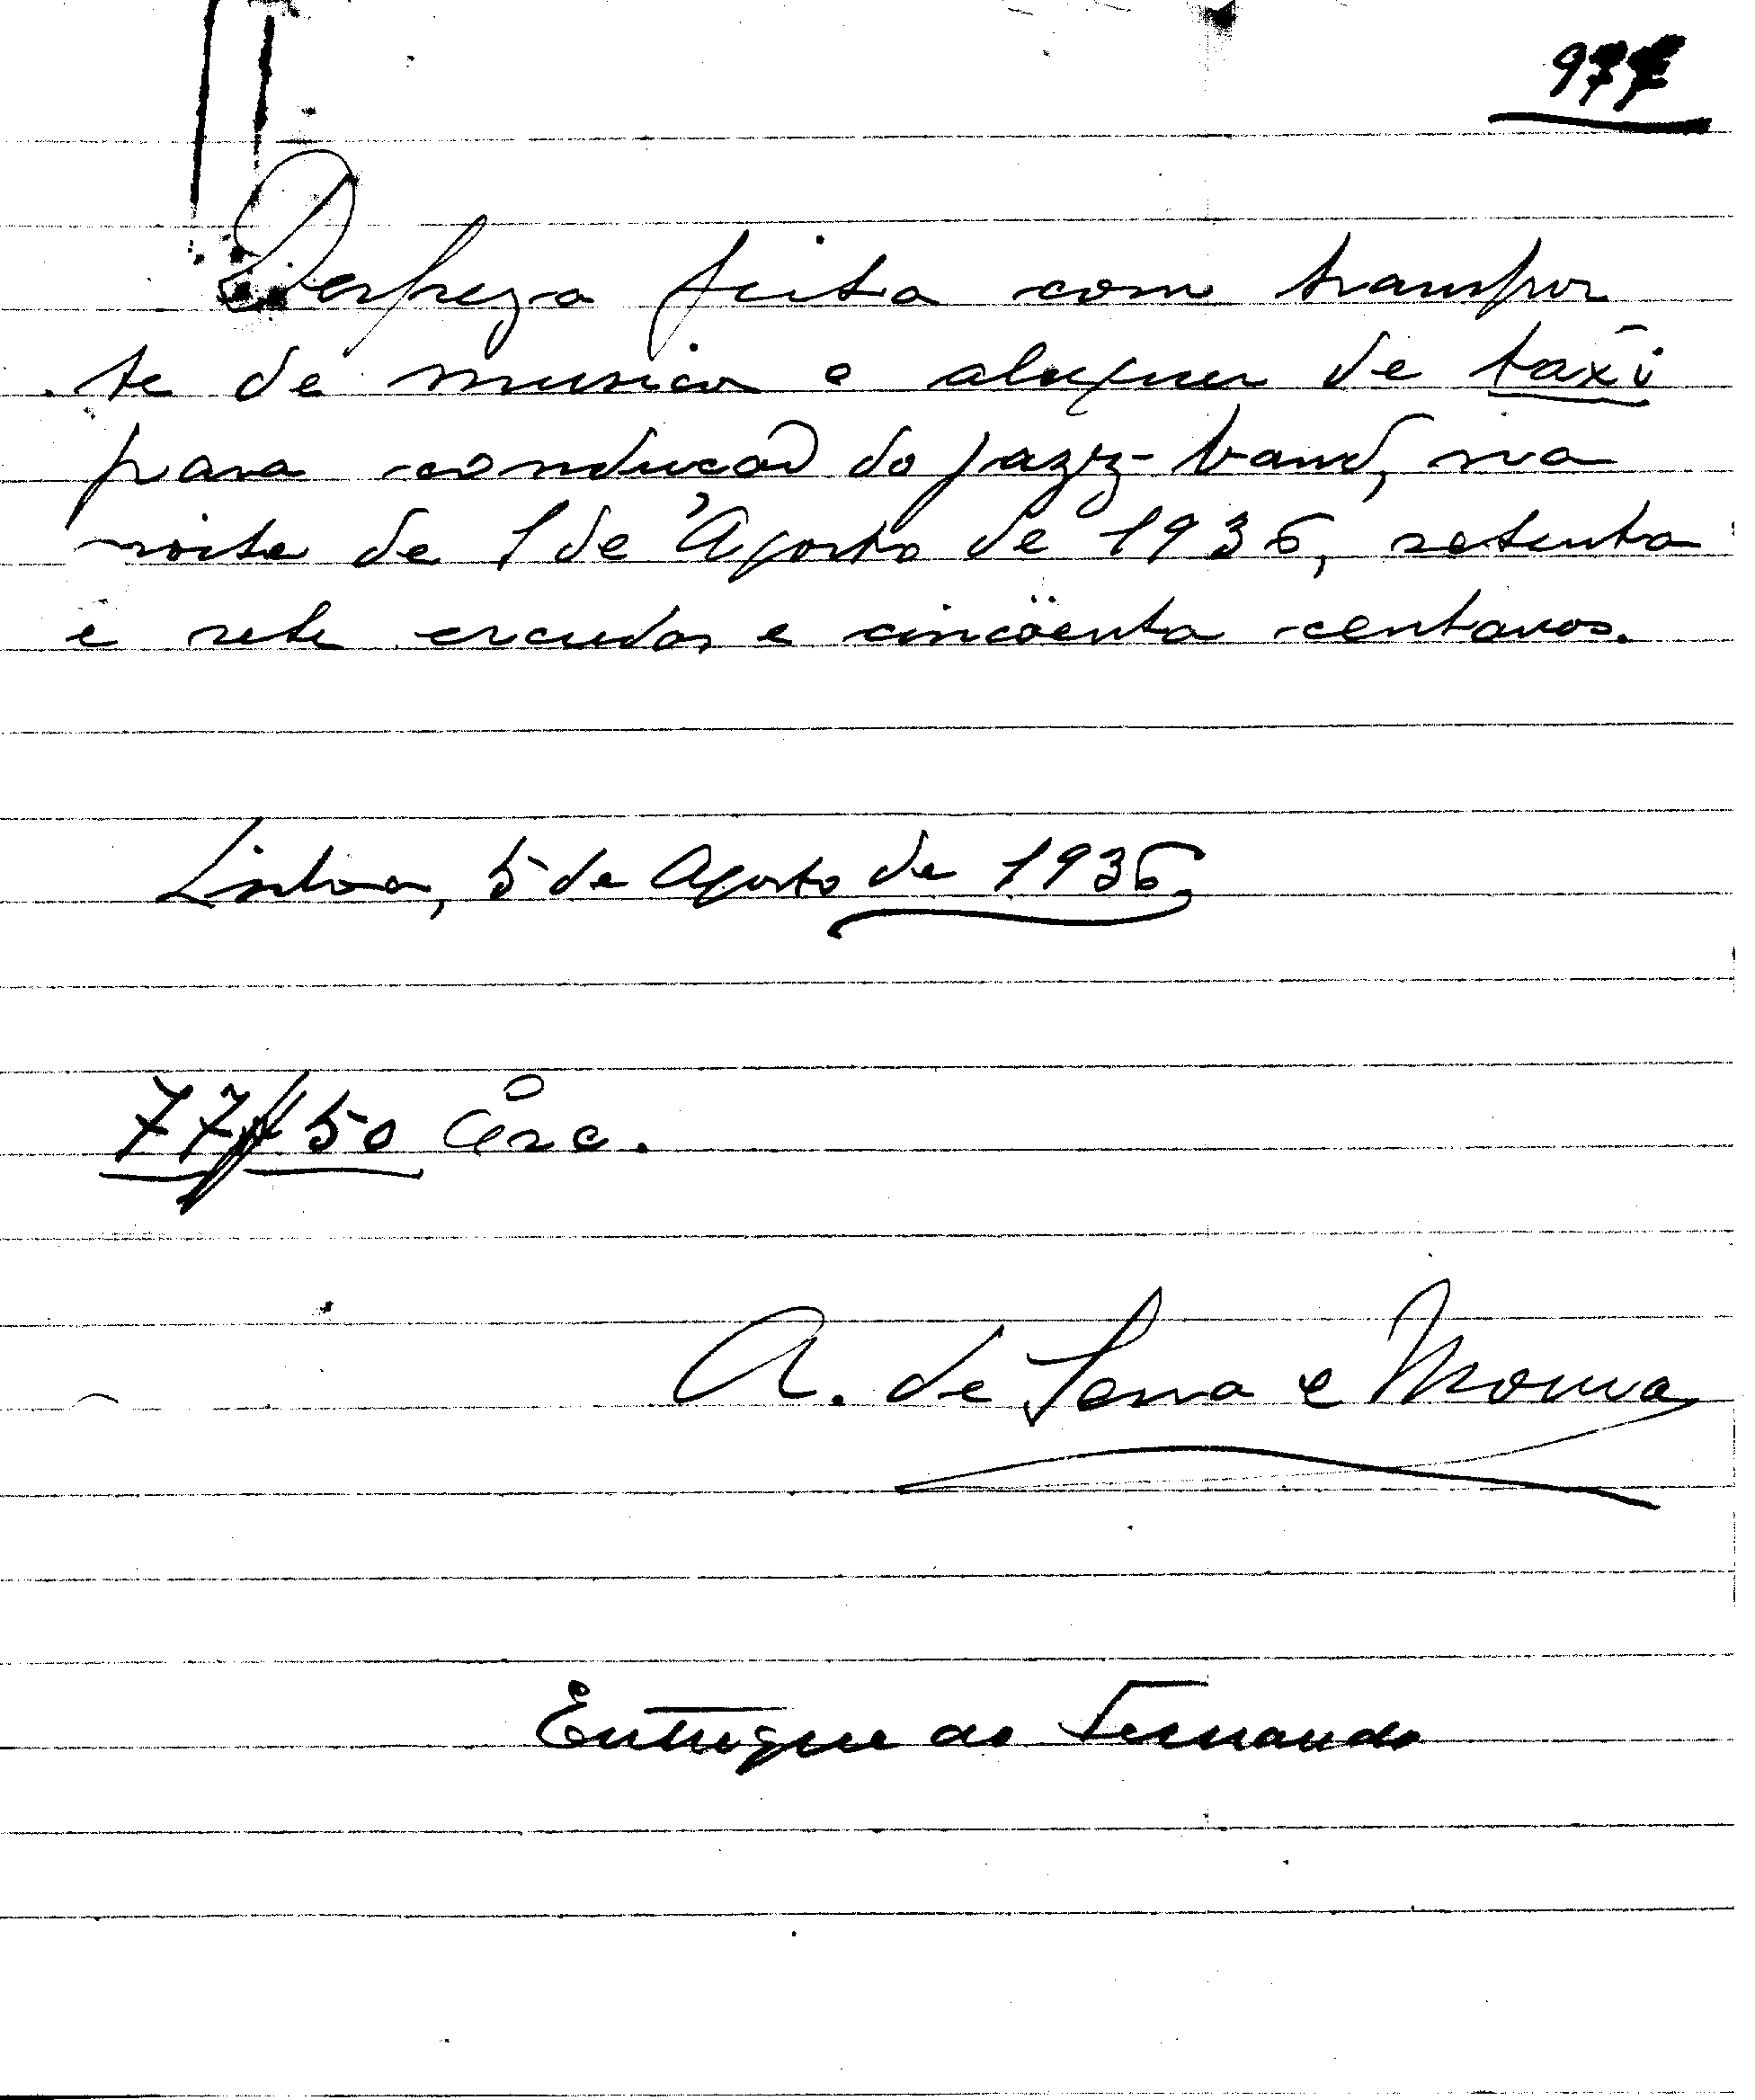 977
Despeza feita com transpor
te de musica e aluguer de taxi
para condução do jazz-band, na
noite de 1 de Agosto de 1936, setenta
e sete escudos e cincoenta centavos.
Lisboa, 5 de Agosto de 1936,
77$50
A. de Sena e Moura
Entregue ao Fernando